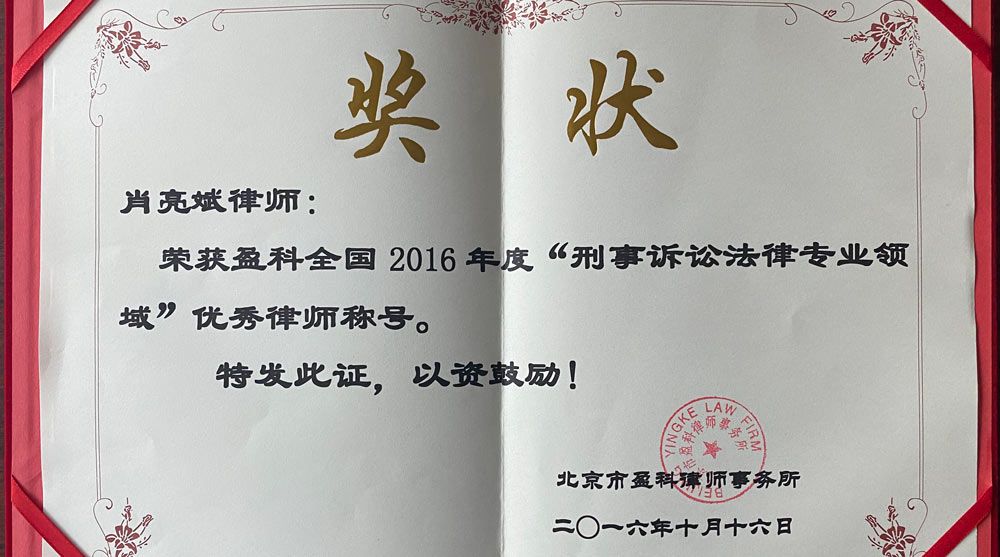 奖 状
肖亮斌律师：
荣获盈科全国 2016 年度“刑事诉讼法律专业领
域”优秀律师称号。
特发此证，以资鼓励！
BEIJING YINGKE LAW FIRM
北京市盈科律师事务所
北京市盈科律师事务所
二〇一六年十月十六日